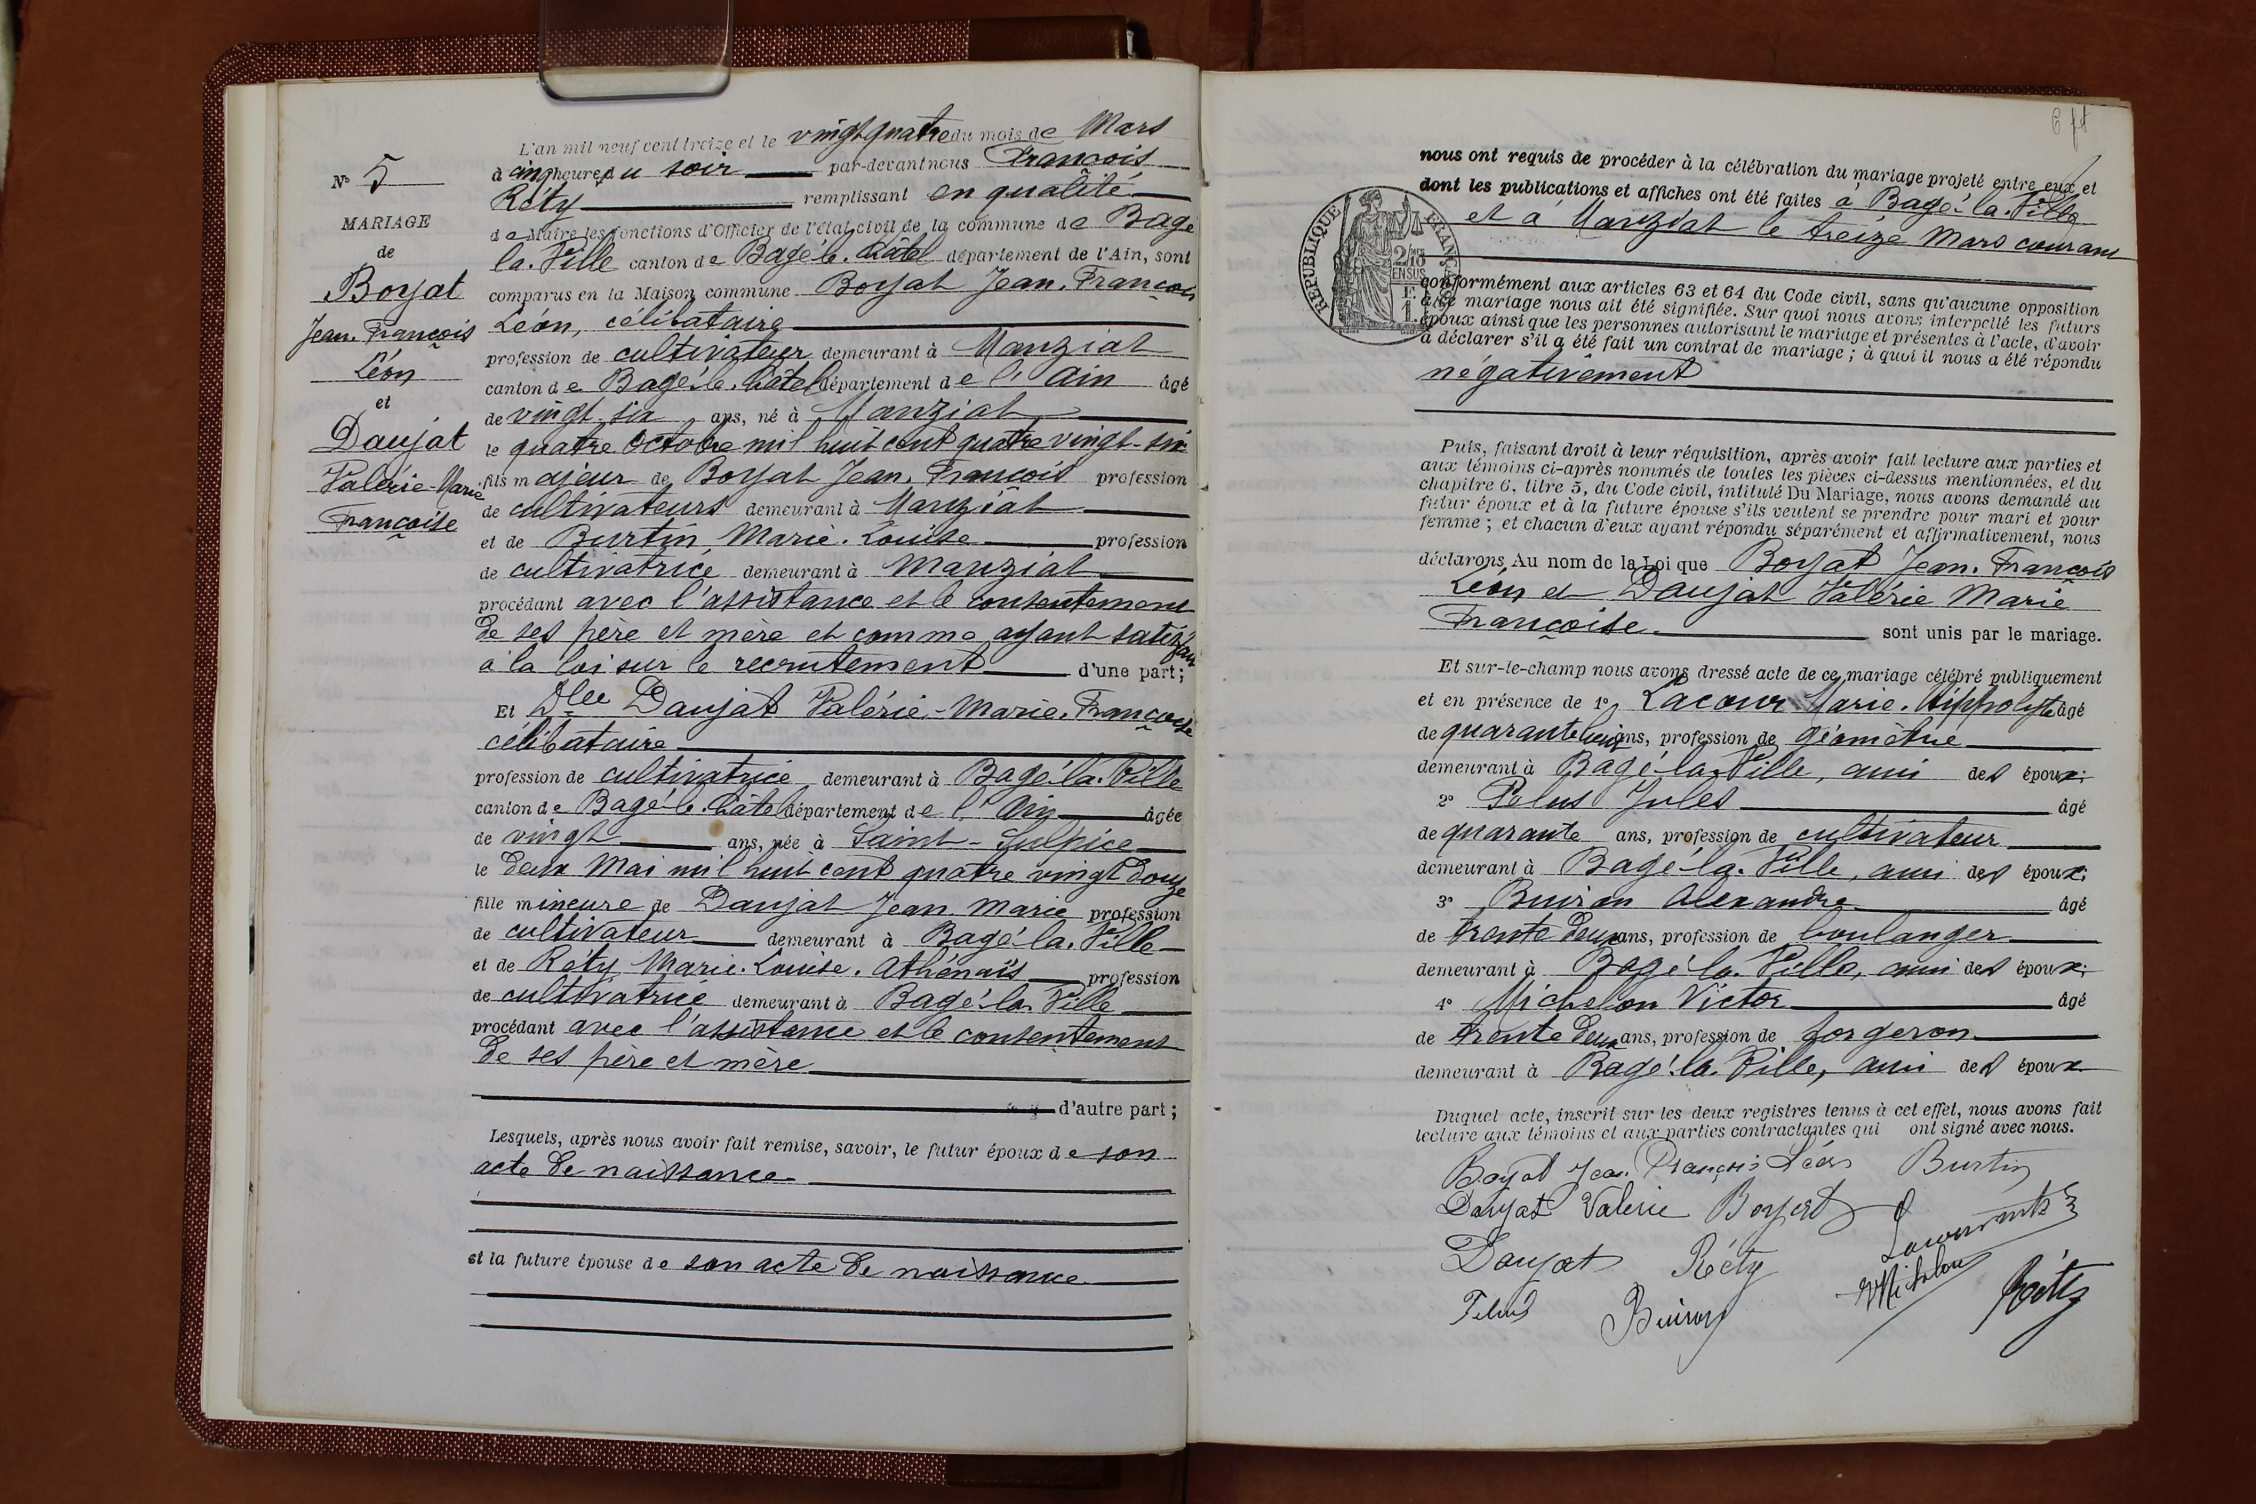 L'an mil neuf cent treize et le vingt quatre du mois de Mars
à cinq heures du soir par-devant nous François
Réty remplissant en qualité
de Maire les fonctions d'Officier de l'état civil de la commune de Bagé
la-Ville canton de Bagé-le-Châtel département de l'Ain, sont
comparus en la Maison commune Boyat Jean-François
Léon, célibataire
profession de cultivateur demeurant à Manziat
canton de Bagé-le-Châtel département de l'Ain âgé
de vingt-six ans, né à Manziat
le quatre Octobre mil huit cent quatre vingt-six
fils majeur de Boyat Jean-François profession
de cultivateurs demeurant à Manziat
et de Burtin Marie-Louise profession
de cultivatrice demeurant à Manziat
procédant avec l'assistance et le consentement
de ses père et mère et comme ayant satisfait
à la loi sur le recrutement d'une part;
Et Dlle Daujat Valérie-Marie-Françoise
célibataire
profession de cultivatrice demeurant à Bagé-la-Ville
canton de Bagé-le-Châtel département de l'Ain âgée
de vingt ans, née à Saint-Sulpice
le deux Mai mil huit cent quatre vingt douze
fille mineure de Daujat Jean Marie profession
de cultivateur demeurant à Bagé-la-Ville
et de Réty Marie-Louise-Athénaïs profession
de cultivatrice demeurant à Bagé-la-Ville
procédant avec l'assistance et le consentement
de ses père et mère
d'autre part;
Lesquels, après nous avoir fait remise, savoir, le futur époux de son
acte de naissance
et la future épouse de son acte de naissance
N° 5
MARIAGE
de
Boyat
Jean-François
Léon
et
Daujat
Valérie-Marie
Françoise
nous ont requis de procéder à la célébration du mariage projeté entre eux et
dont les publications et affiches ont été faites à Bagé-la-Ville
et à Manziat le treize Mars courant
RÉPUBLIQUE FRANÇAISE
conformément aux articles 63 et 64 du Code civil, sans qu'aucune opposition
à ce mariage nous ait été signifiée. Sur quoi nous avons interpellé les futurs
époux ainsi que les personnes autorisant le mariage et présentes à l'acte, d'avoir
à déclarer s'il a été fait un contrat de mariage; à quoi il nous a été répondu
négativement
Puis, faisant droit à leur réquisition, après avoir fait lecture aux parties et
aux témoins ci-après nommés de toutes les pièces ci-dessus mentionnées, et du
chapitre 6, titre 5, du Code civil, intitulé Du Mariage, nous avons demandé au
futur époux et à la future épouse s'ils veulent se prendre pour mari et pour
femme; et chacun d'eux ayant répondu séparément et affirmativement, nous
déclarons Au nom de la Loi que Boyat Jean-François
Léon et Daujat Valérie Marie
Françoise sont unis par le mariage.
Et sur-le-champ nous avons dressé acte de ce mariage célébré publiquement
et en présence de 1° Lacour Marie-Hippolyte âgé
de quarante ans, profession de géomètre
demeurant à Bagé-la-Ville, ami des époux;
2° Pelus Jules âgé
de quarante ans, profession de cultivateur
demeurant à Bagé-la-Ville, ami des époux;
3° Buiron Alexandre âgé
de trente deux ans, profession de boulanger
demeurant à Bagé-la-Ville, ami des époux;
4° Michelon Victor âgé
de trente deux ans, profession de forgeron
demeurant à Bagé-la-Ville, ami des époux
Duquel acte, inscrit sur les deux registres tenus à cet effet, nous avons fait
lecture aux témoins et aux parties contractantes qui ont signé avec nous.
Boyat Jean François Léon Burtin
Daujat Valérie Boyat
Daujat Réty Michelon Réty
Pelus Buiron